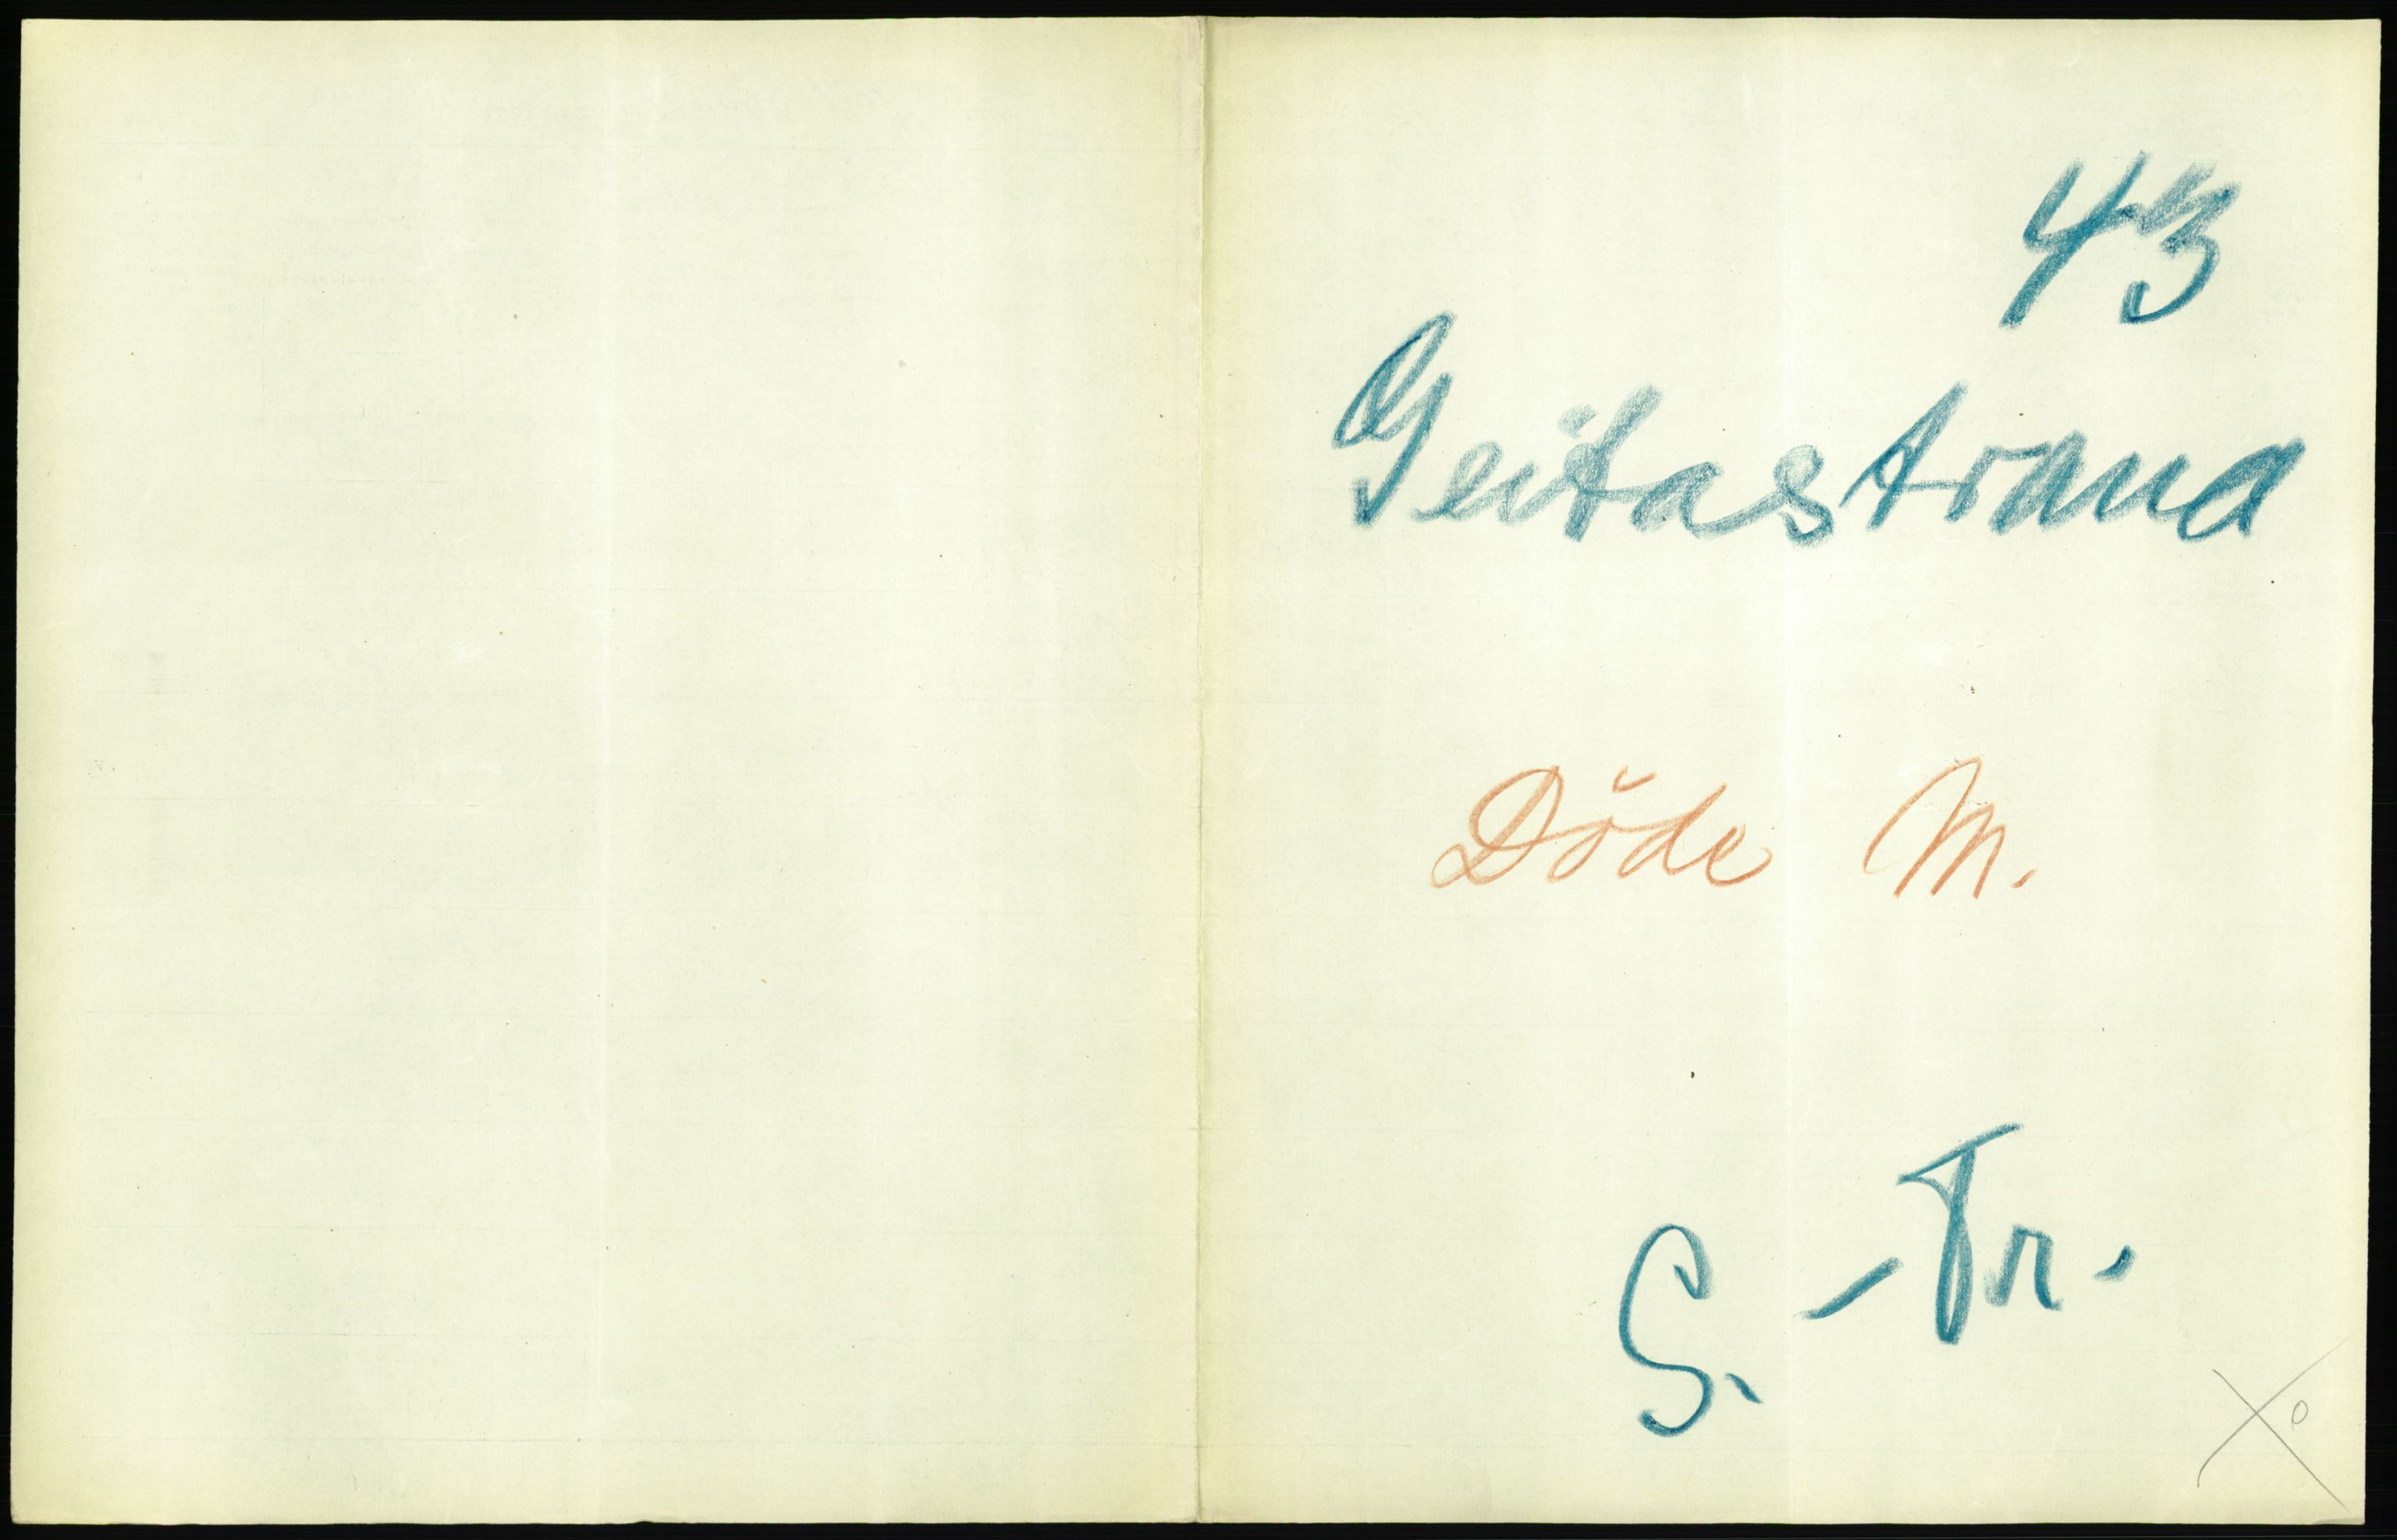 43
Geitastrand
Döde M.
S.-Tr.
X0